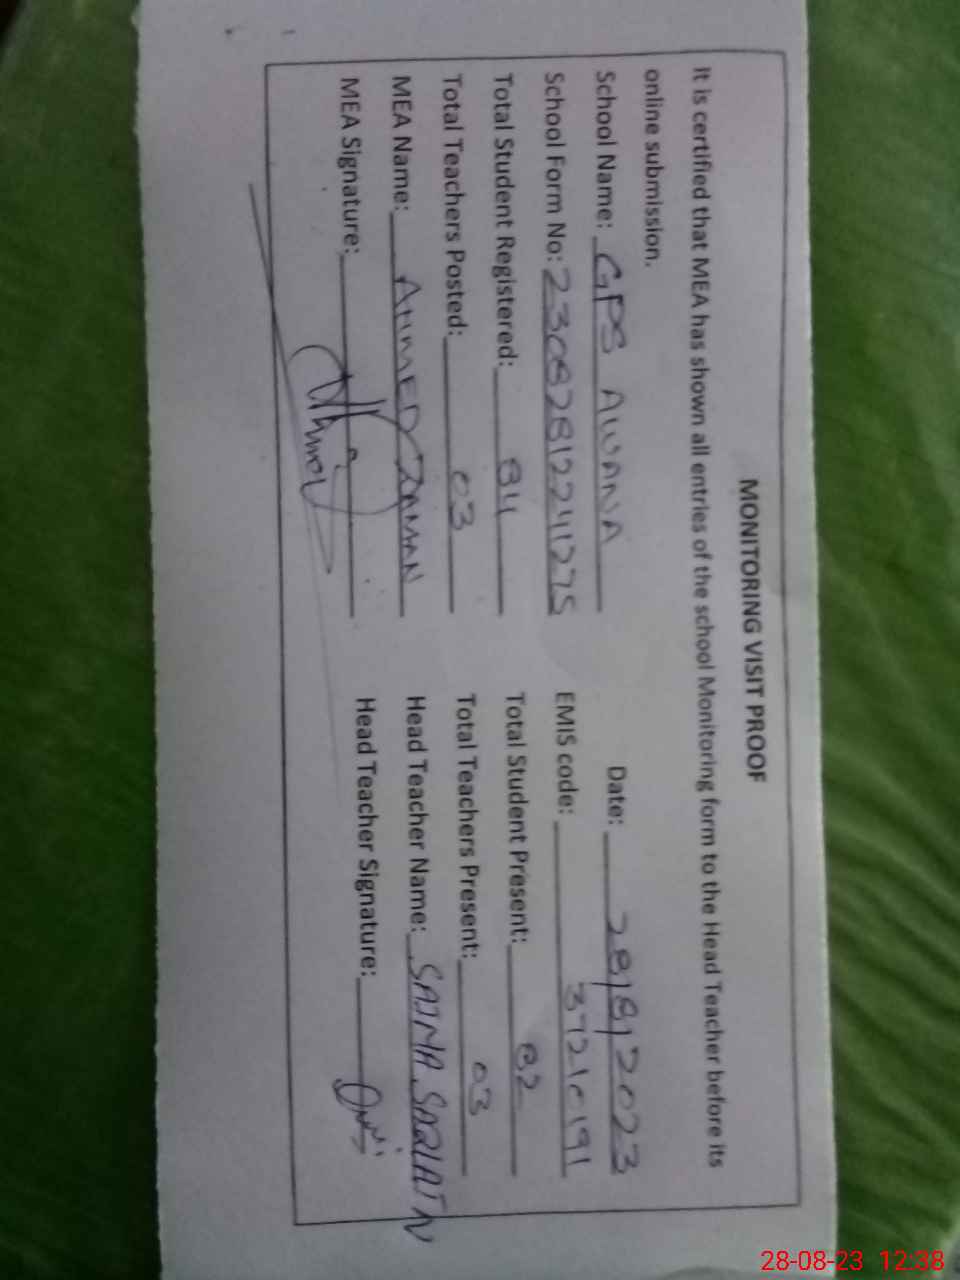 MONITORING VISIT PROOF
It is certified that MEA has shown all entries of the school Monitoring form to the Head Teacher before its
online submission.
School Name: GPS AWANA Date: 28/8/2023
School Form No: 230828122411275 EMIS code: 37210191
Total Student Registered: 84 Total Student Present: 82
Total Teachers Posted: 03 Total Teachers Present: 03
MEA Name: AHMED ZAMAN Head Teacher Name: SAIMA
MEA Signature: Head Teacher Signature:
28-08-23 12:38